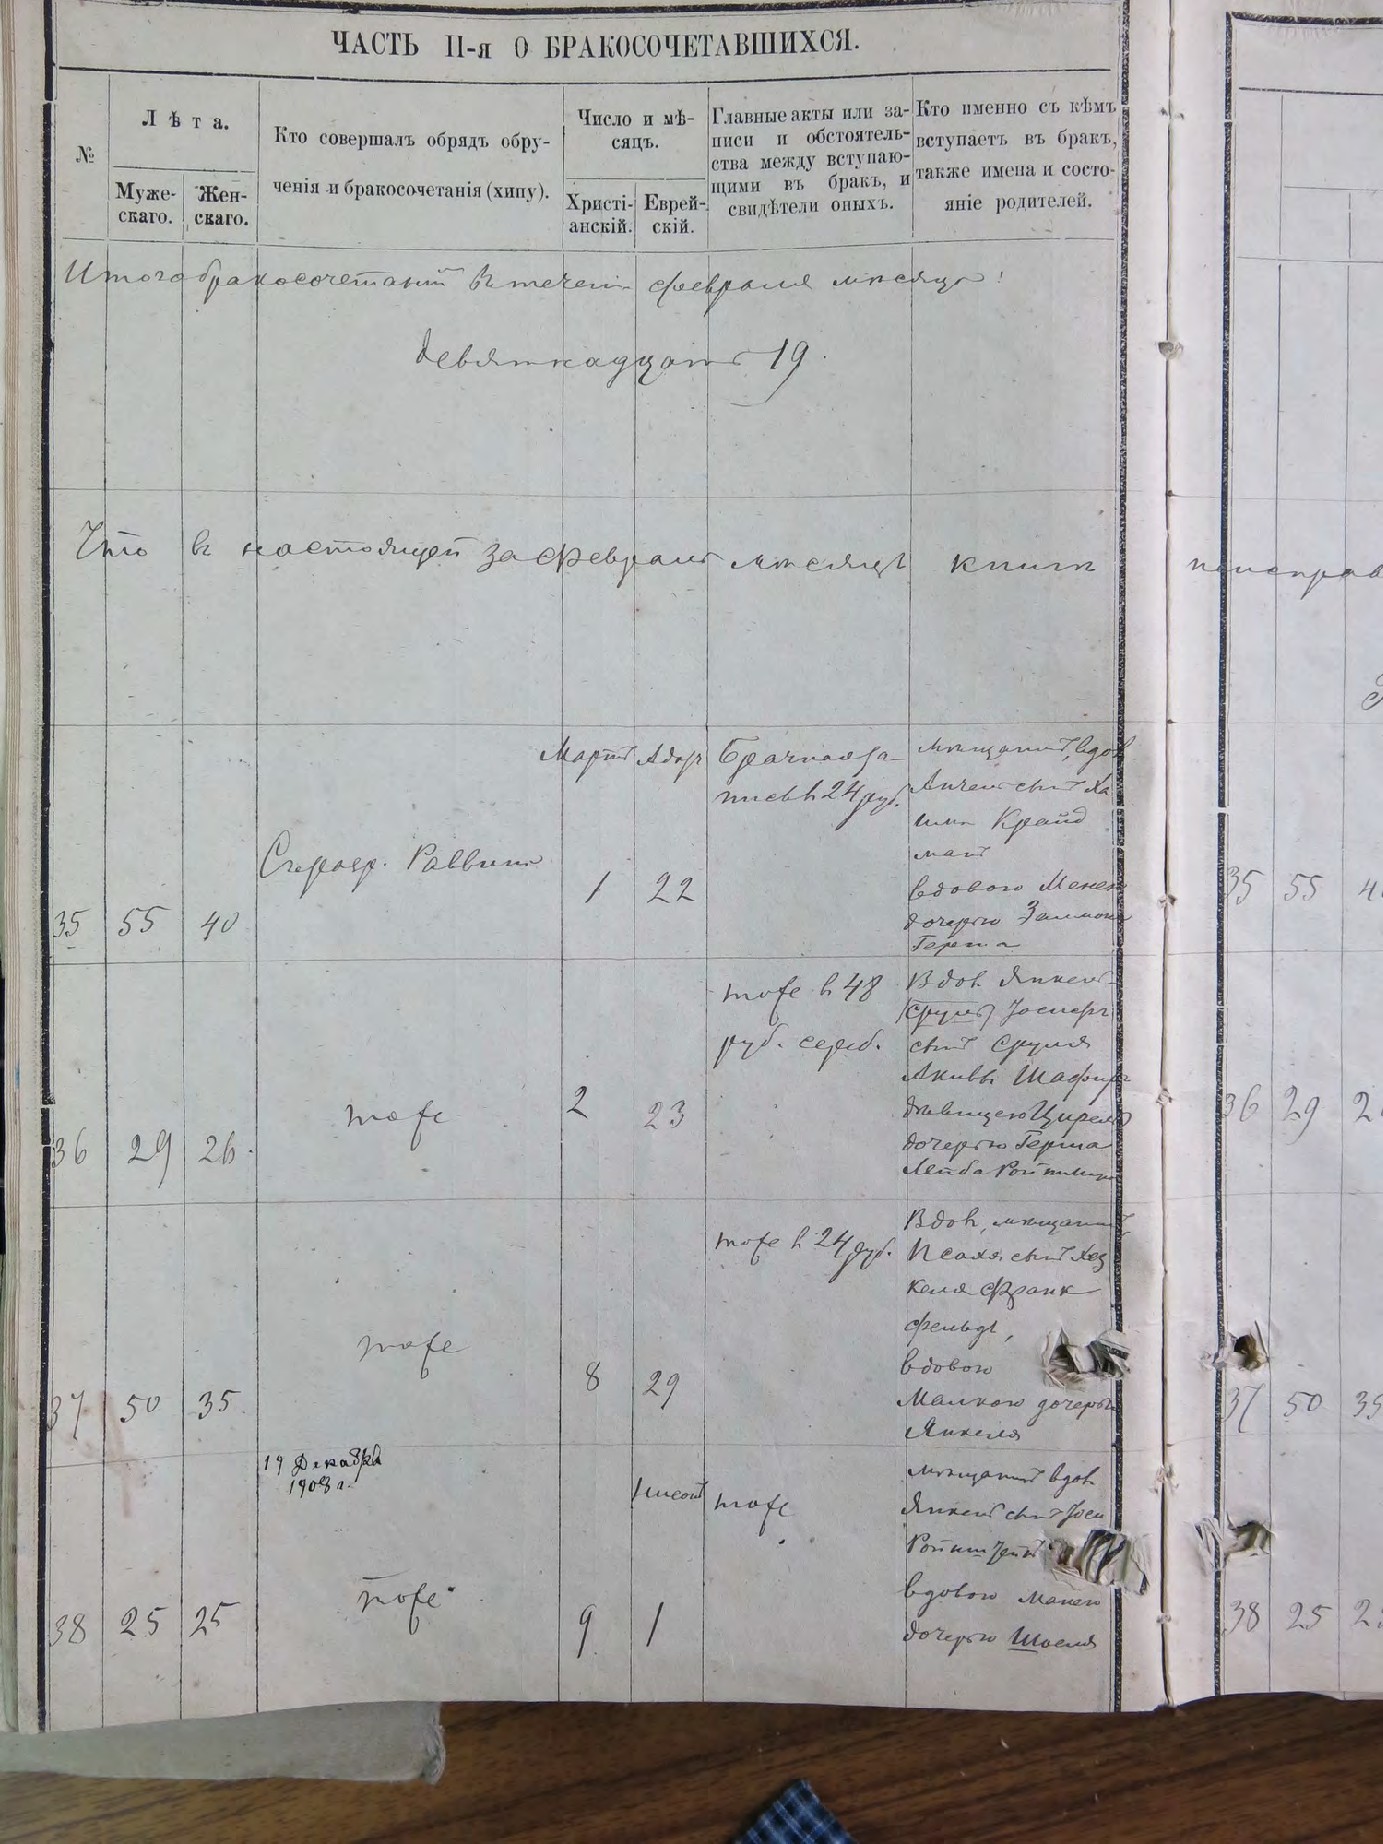 ЧАСТЬ II-я О БРАКОСОЧЕТАВШИХСЯ.
№
Лѣта.
Муже-
скаго.
Жен-
скаго.
Кто совершалъ обрядъ обру-
ченія и бракосочетанія (хипу).
Число и мѣ-
сяцъ.
Христі-
анскій.
Еврей-
скій.
Главные акты или за-
писи и обстоятель-
ства между вступаю-
щими въ бракъ, и
свидѣтели оныхъ.
Кто именно съ кѣмъ
вступаетъ въ бракъ,
также имена и состо-
яніе родителей.
Итого бракосочетаній въ теченіи февраля мѣсяца
девятнадцать 19
Что въ настоящей за февраль мѣсяцъ книгѣ
35 55 40
Раввинъ
Мартъ Адаръ
1 22
Брачная за-
пись в 24 руб.
мѣщанинъ, вдов
сынъ Ха
има Крайд
манъ
вдовою
дочерью
Герша
36 29 26
тоже
2 23
тоже в 48
руб. сереб.
Вдов. Янкель
(Сруль)
сынъ Сруля
Акивы Шафир
дѣвицею Цирель
дочерью Герша
Лейба
37 50 35
тоже
8 29
тоже в 24 руб.
Вдов, мѣщанинъ
сынъ Хац
келя Франк
фельдъ,
вдовою
Малкою дочерью
Янкеля
19 Декабря
1908 г.
38 25 25
тоже
Нисонъ
9 1
тоже
мѣщанинъ вдов
Янкель сынъ
вдовою
дочерью
35 55
36 29
37 50 35
38 25